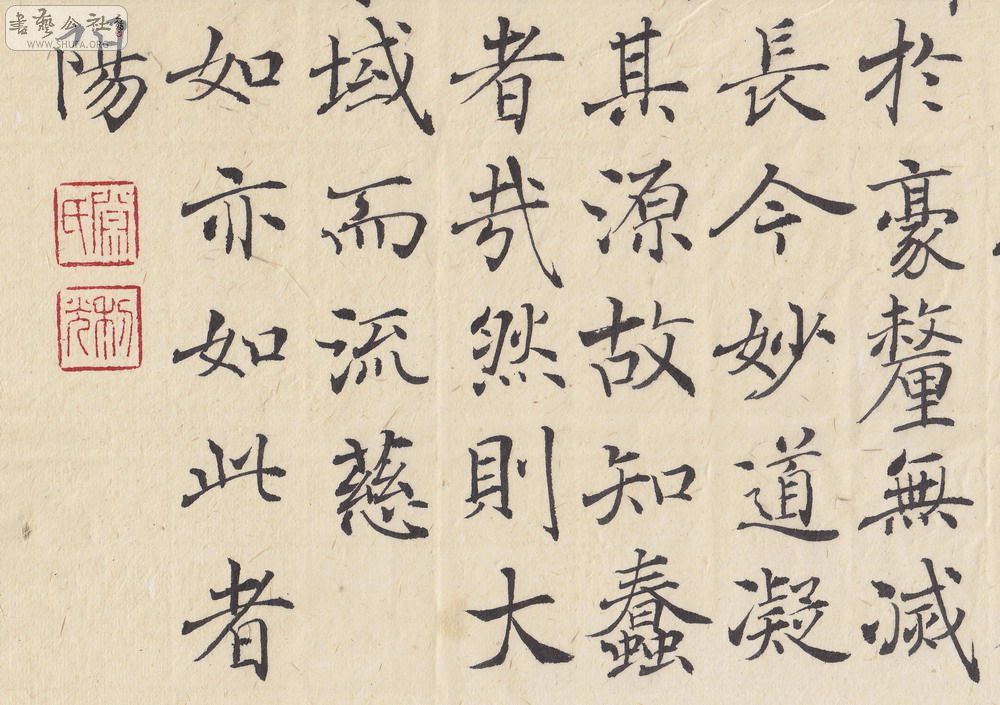 於豪釐無滅
長今妙道凝
其源故知蠢
者哉然則大
域而流慈
如亦如此者
陽
書藝公社
WWW.SHUFA.ORG